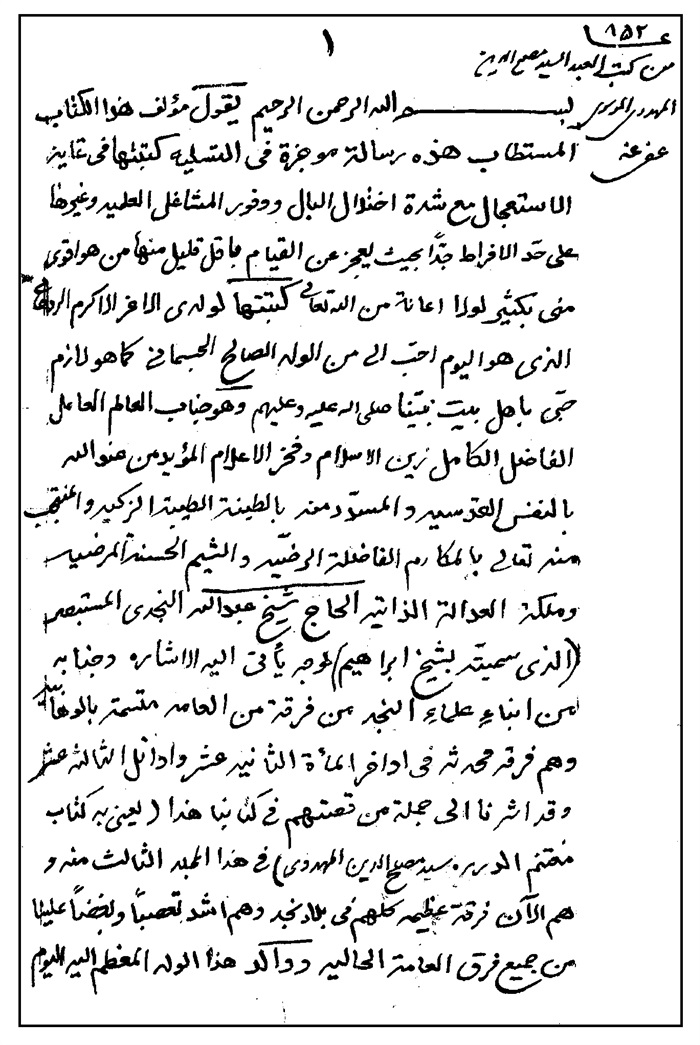 ٨٥٢
١
من كتب العبد السيد مصلح الدين
المهدوي الموسوي
عفى عنه
بسم الله الرحمن الرحيم يقول مؤلف هذا الكتاب
المستطاب هذه رسالة موجزة فى التسليه كتبتها فى غاية
الاستعجال مع شدة اختلال البال ووفور المشاغل العلميه وغيرها
على حد الافراط جدّاً بحيث يعجز عن القيام باقل قليل منها من هو اقوى
منى بكثير لولا اعانة من الله تعالى كتبتها لولدى الاعز الاكرم الروحانى
الذى هو اليوم احبّ الى من الولد الصالح الجسمانى كما هو لازم
حبّى باهل بيت نبيّنا صلى الله عليه وعليهم وهو جناب العالم العامل
الفاضل الكامل زين الاسلام وفخر الاعلام المؤيد من عند الله
بالنفس القدسيه والمسدّد منه بالطينة الطيبة الزكيه والمنتجب
منه تعالى بالمكارم الفاضلة الرضيّه والشيم الحسنة المرضيه
وملكة العدالة الذاتيه الحاج شيخ عبدالله النجدى المستبصر
(الذى سميته بشيخ ابراهيم) لوجه يأتى اليه الاشاره وجنابه
من ابناء علماء النجد من فرقة من العامه متسمّة بالوهابيه
وهم فرقه محدثه فى اواخر المأة الثانيه عشر واوائل الثالثه عشر
وقد اشرنا الى جملة من قصتهم فى كتابنا هذا (يعنى به كتاب
مغتنم الدرر. سيد مصلح الدين المهدوى) فى هذا المجلد الثالث منه و
هم الآن فرقة عظيمه كلهم فى بلاد نجد وهم اشد تعصباً وبغضاً علينا
من جميع فرق العامة الحاليه ووالد هذا الولد المعظم اليه اليوم